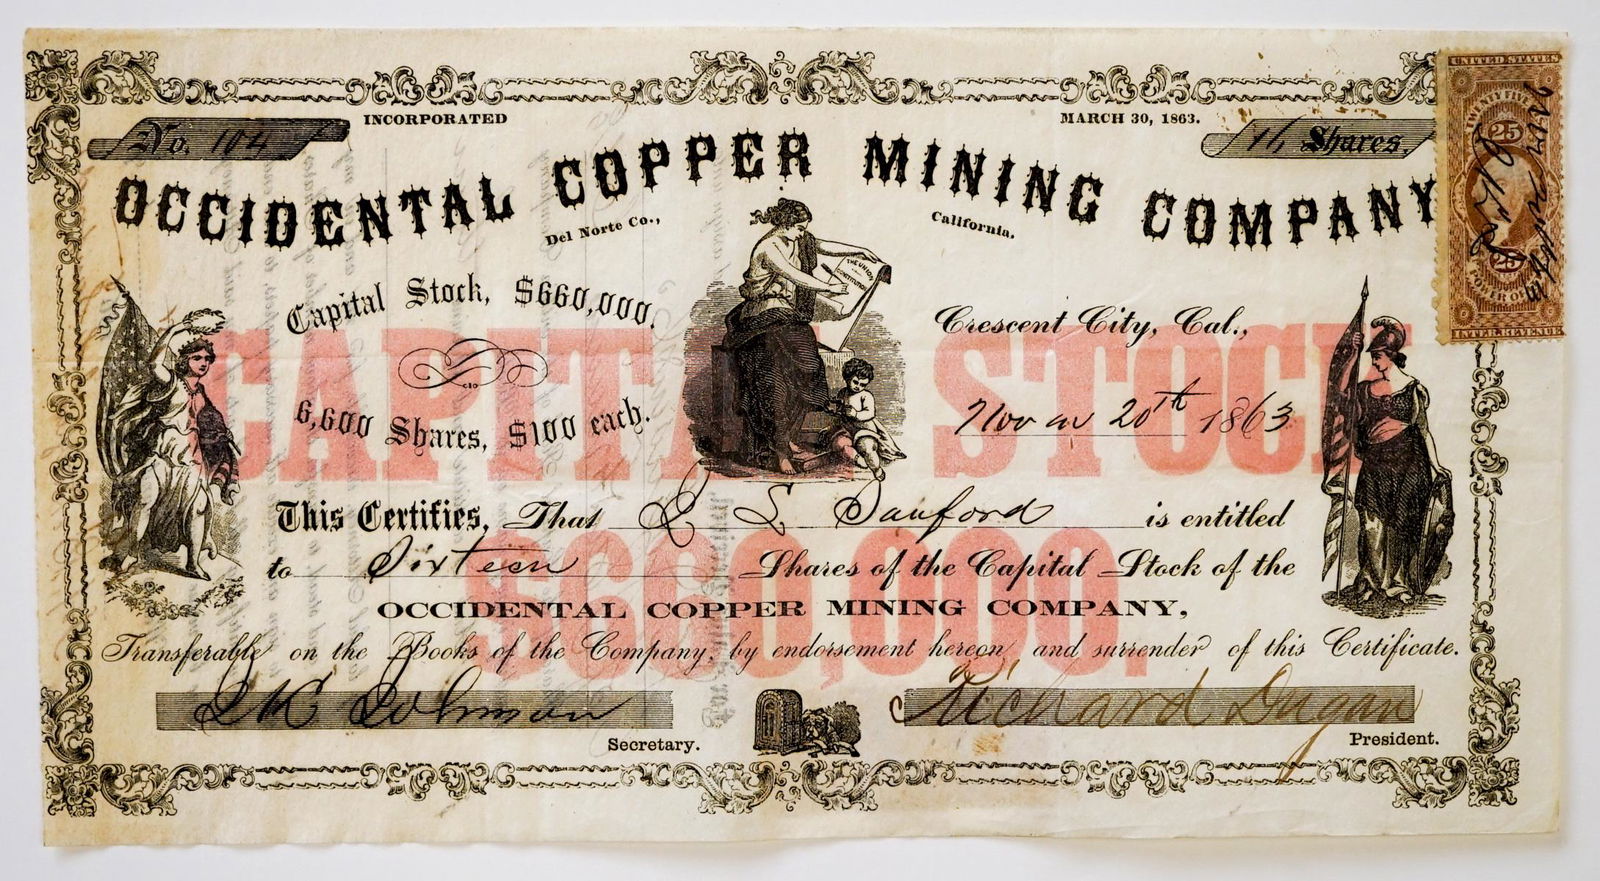 INCORPORATED MARCH 30, 1863.
No. 104 16 Shares.
OCCIDENTAL COPPER MINING COMPANY
Del Norte Co., California.
THE UNION
CONSTITUTION
Capital Stock, $660,000.
6,600 Shares, $100 each.
CAPITAL STOCK
$660,000.
Crescent City, Cal.,
Nov 20th 1863
This Certifies, That E L Sanford is entitled
to Sixteen Shares of the Capital Stock of the
OCCIDENTAL COPPER MINING COMPANY,
Transferable on the Books of the Company by endorsement hereon and surrender of this Certificate.
Johnson Richard Dugan
Secretary. President.
UNITED STATES
TWENTY FIVE
25
25
POWER OF
INTER. REVENUE